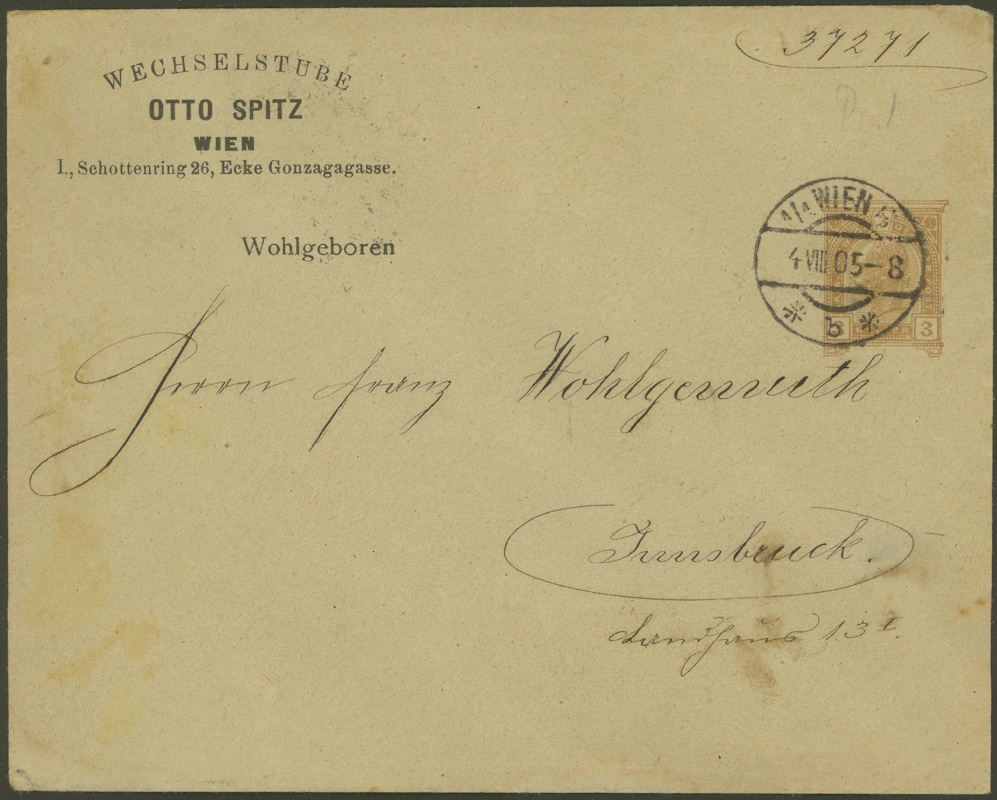 37271
WECHSELSTUBE
OTTO SPITZ
WIEN
I., Schottenring 26, Ecke Gonzagagasse.
1/1 WIEN
4 VIII 05-8
* b *
3 3
Wohlgeboren
Herrn Franz Wohlgemuth
Innsbruck.
Landhaus 13 I.